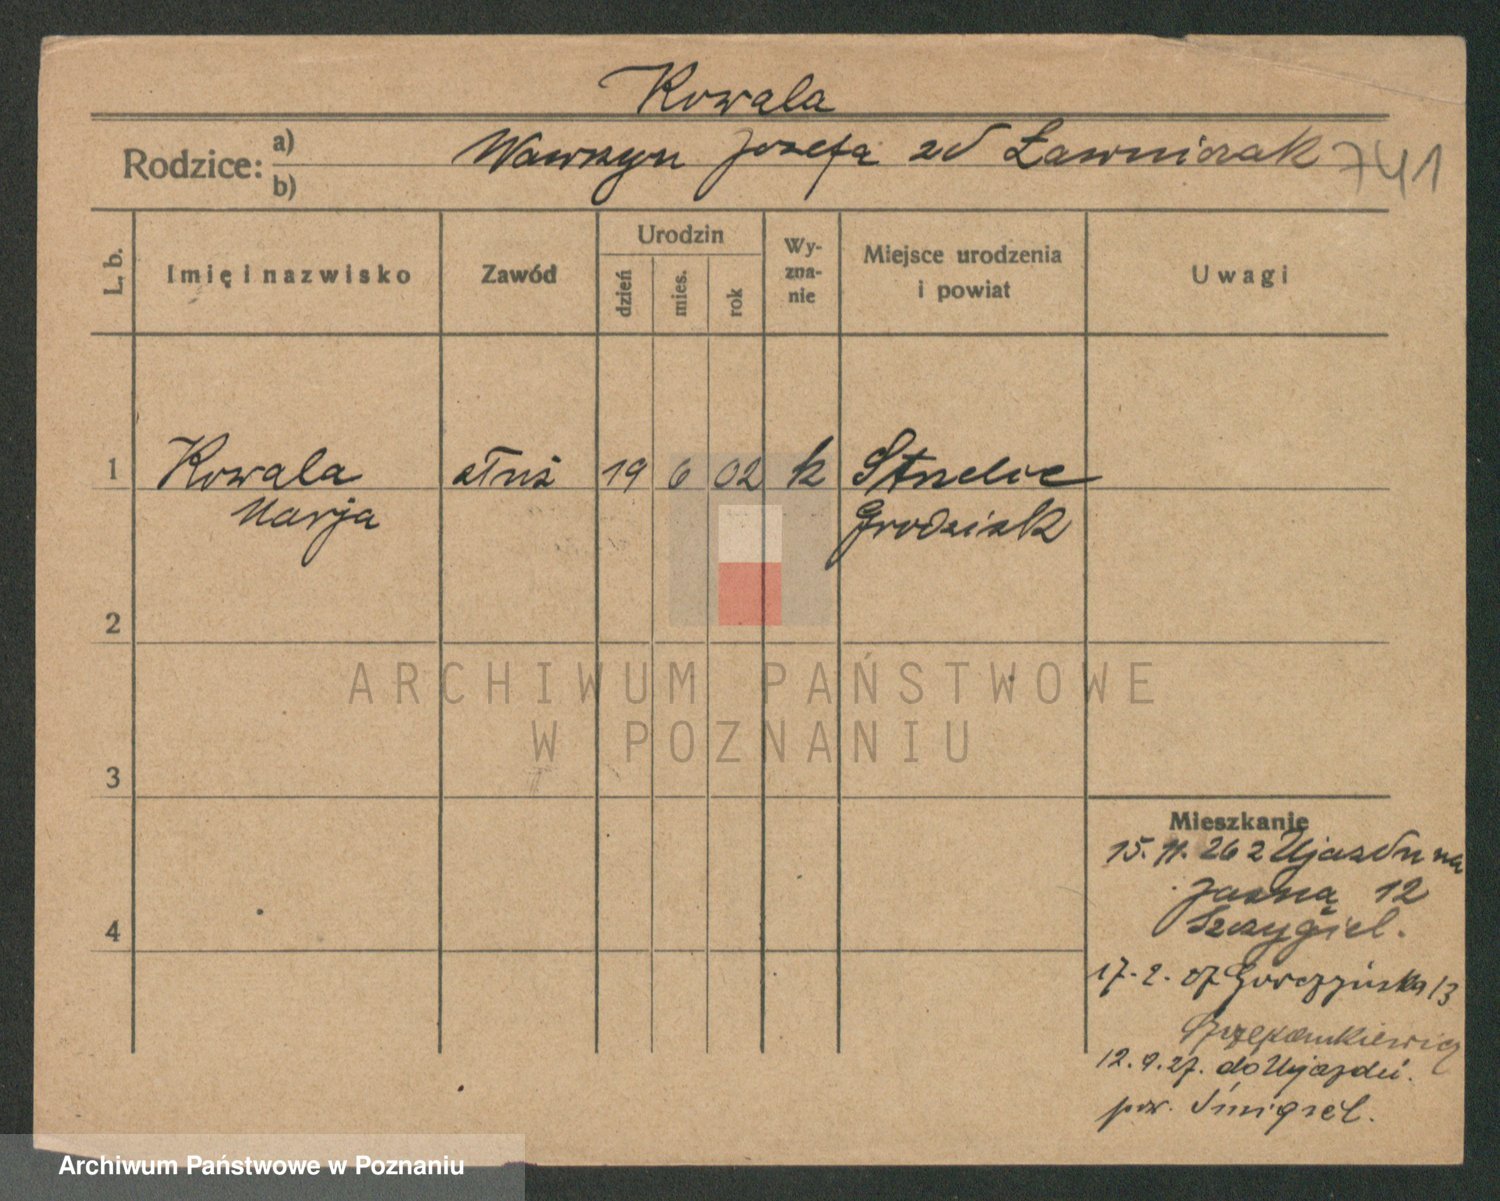 Kowala
Rodzice:
a) Wawrzyn Józefa zd Ławniczak 741
b)
L. b.
Imię i nazwisko
Zawód
Urodzin
dzień
mies.
rok
Wy-
zna-
nie
Miejsce urodzenia
i powiat
Uwagi
1 Kowala służ 19 6 02 k Strzelce
Marja Grodzisk
2
3
4
ARCHIWUM PAŃSTWOWE
W POZNANIU
Mieszkanie
15. 11. 26 z Ujazdu na
Jasną 12
Szczygieł.
17. 2. 27 Gorczyńska 13
12. 9. 27. do Ujazdu.
pow. Śmigiel.
Archiwum Państwowe w Poznaniu